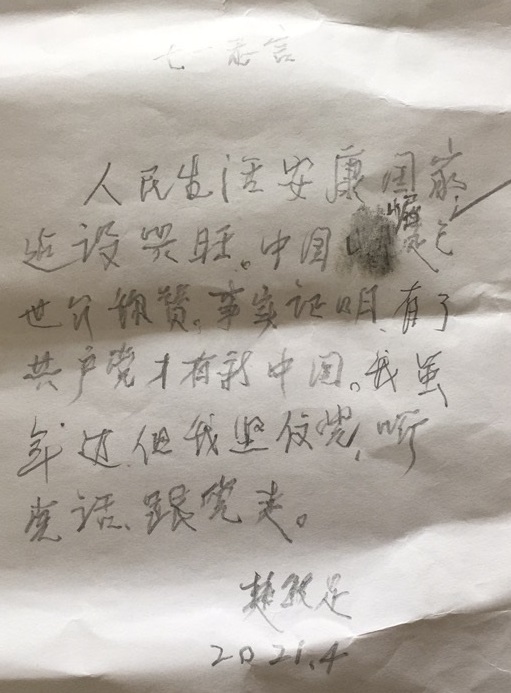 七一感言
人民生活安康国家
建设兴旺。中国崛起
世界称赞。事实证明,有了
共产党才有新中国。我虽
年迈,但我坚信党,听
党话、跟党走。
2021.4